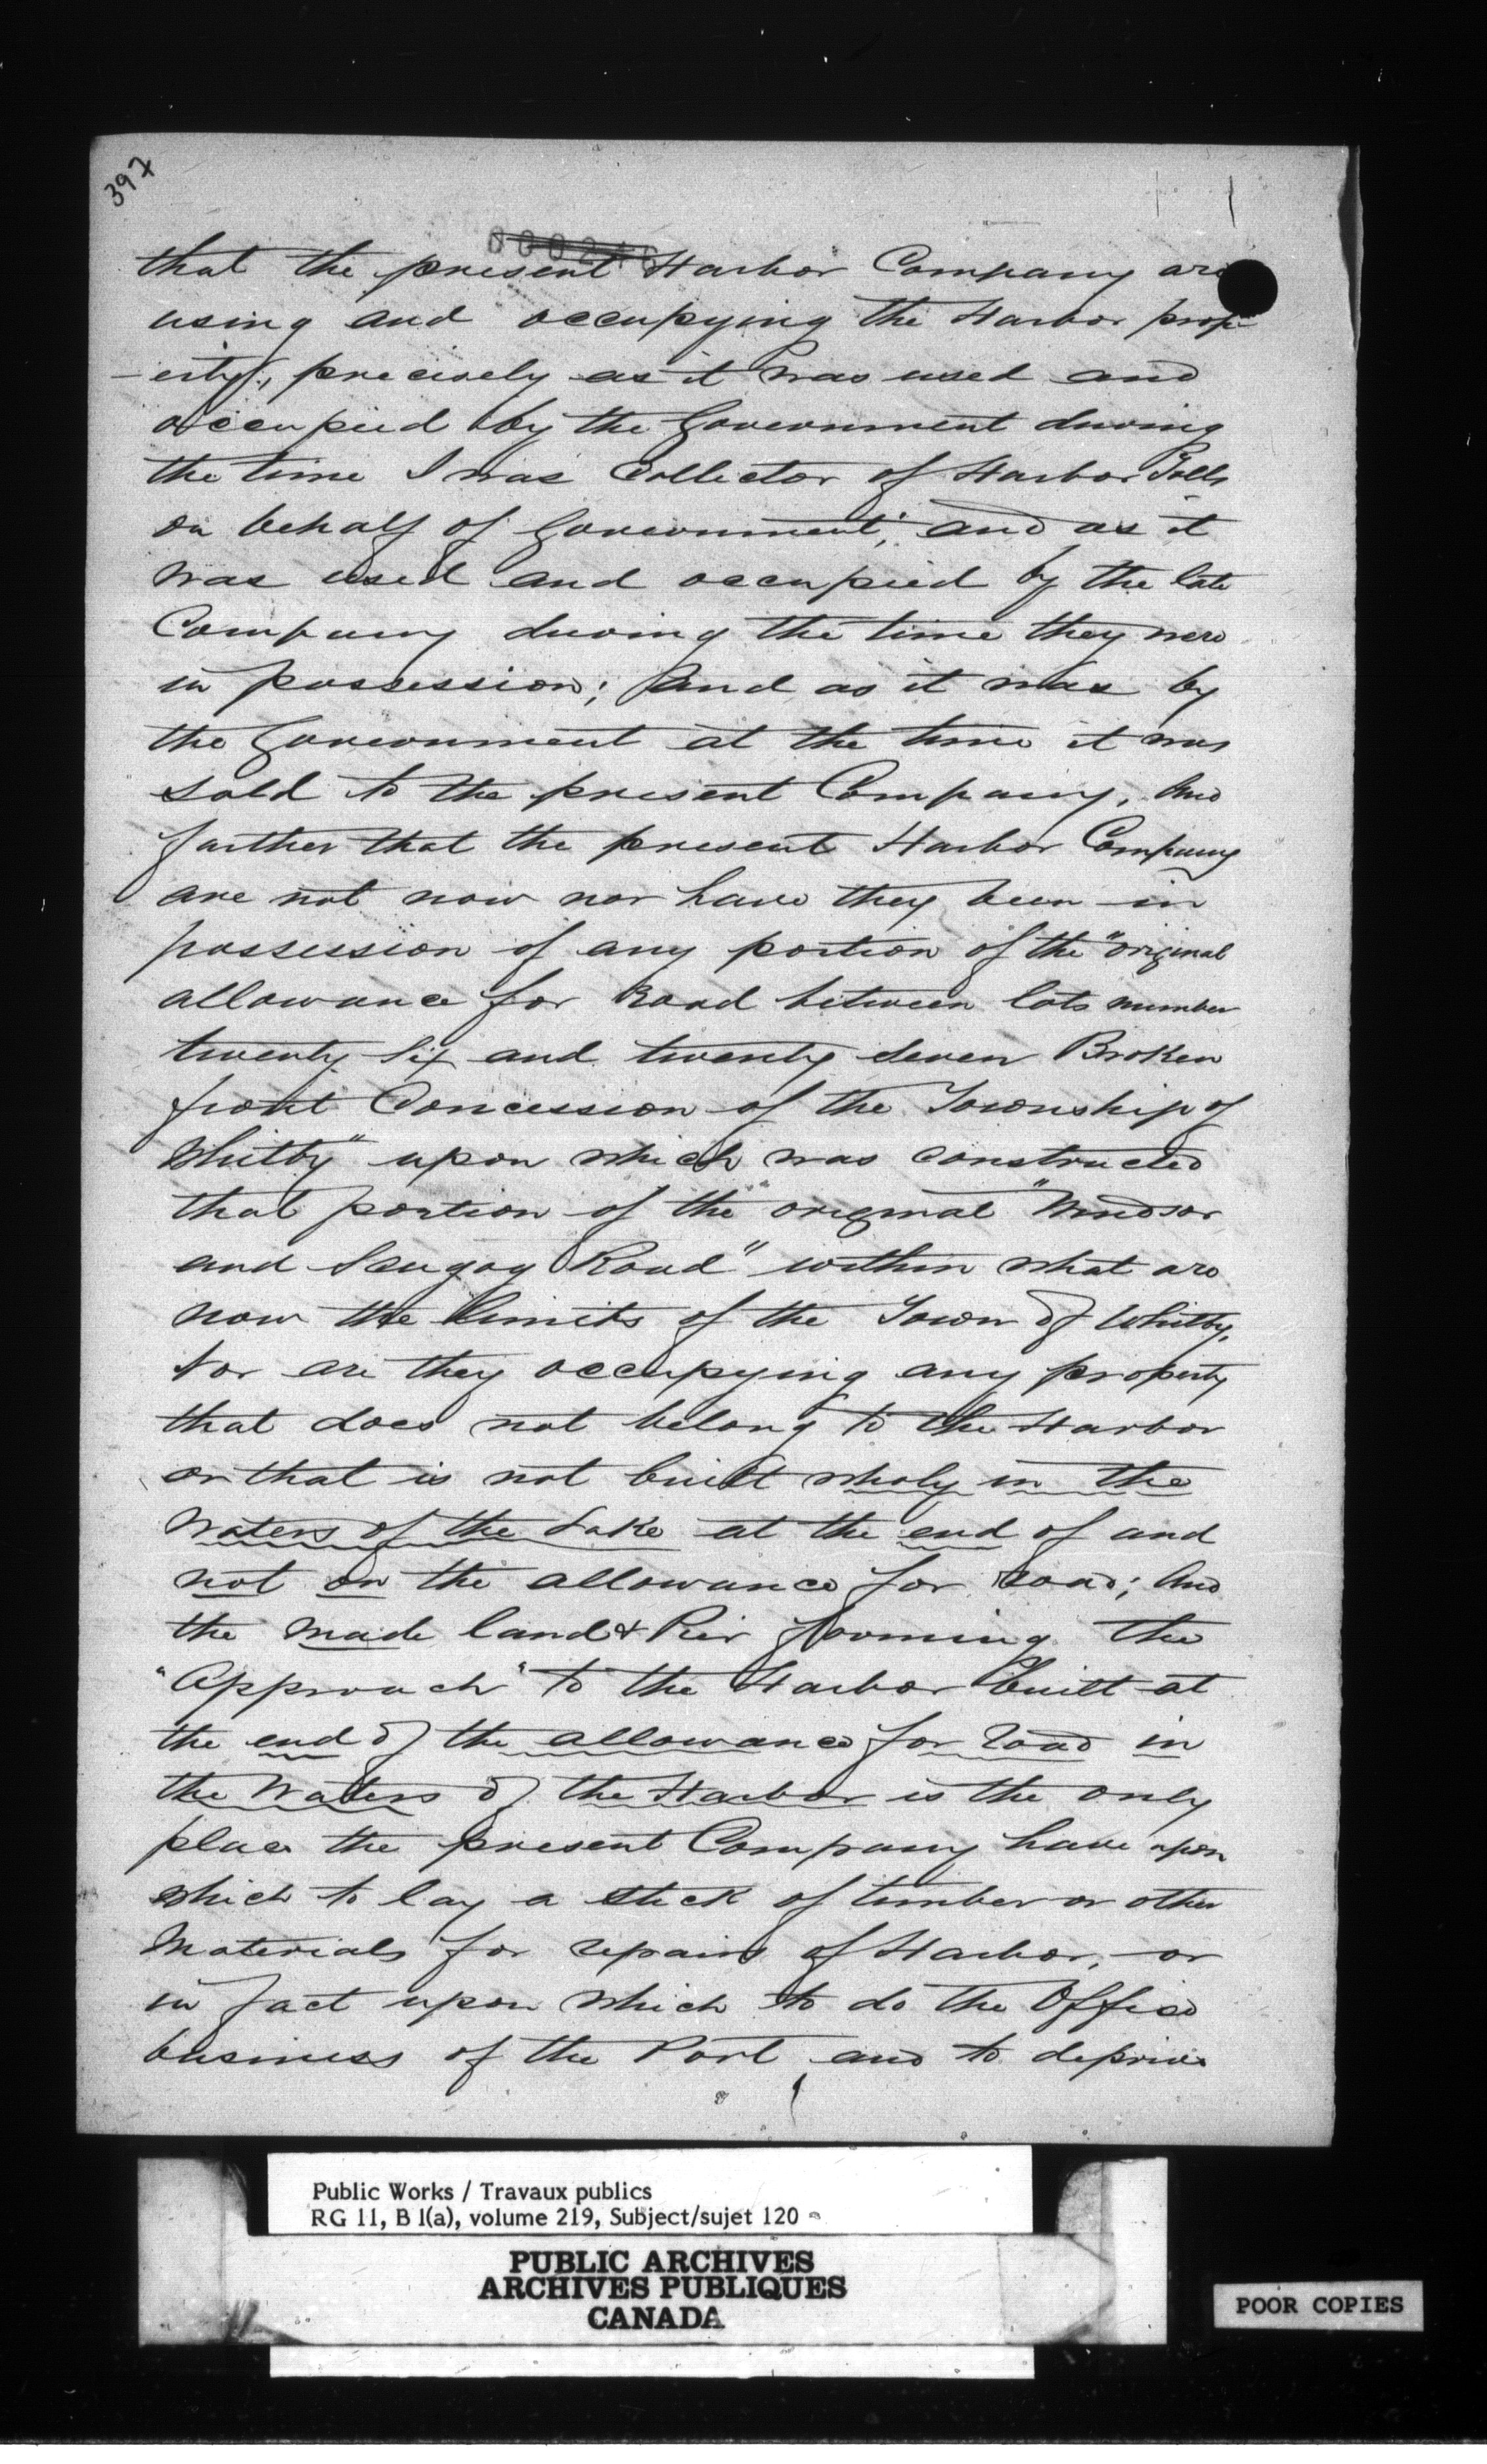 397
that the present Harbor Company are
using and occupying the Harbor prop-
-erty, precisely as it was used and
occupied by the Government during
the time I was Collector of Harbor Tolls
on behalf of Government; and as it
was used and occupied by the late
Company during the time they were
in possession; and as it was by
the Government at the time it was
sold to the present Company. And
further that the present Harbor Company
are not now nor have they been in
possession of any portion of the "original
allowance for Road between lots number
twenty six and twenty seven Broken
front Concession of the Township of
Whitby" upon which was constructed
that portion of the "original "Windsor
and Scugog Road" within what are
now the limits of the Town of Whitby,
Nor are they occupying any property
that does not belong to the Harbor
or that is not built wholy in the
waters of the Lake at the end of and
not on the allowance for road; And
the made land & Pier forming the
"Approach" to the Harbor built at
the end of the allowance for road in
the waters of the Harbor is the only
place the present Company have upon
which to lay a stick of timber or other
Materials for repairs of Harbor, or
in fact upon which to do the Office
business of the Port and to deprive
Public Works / Travaux publics
RG 11, B 1(a), volume 219, Subject/sujet 120
PUBLIC ARCHIVES
ARCHIVES PUBLIQUES
CANADA
POOR COPIES